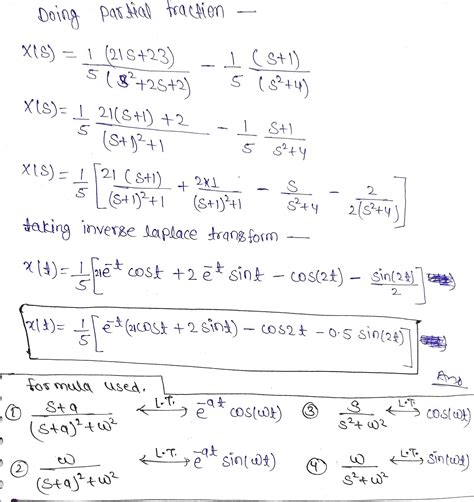 Doing partial fraction —
X(S) = 1/5 (21S+23)/(S²+2S+2) - 1/5 (S+1)/(S²+4)
X(S) = 1/5 21(S+1)+2/(S+1)²+1 - 1/5 S+1/S²+4
X(S) = 1/5 [21(S+1)/(S+1)²+1 + 2×1/(S+1)²+1 - S/S²+4 - 2/2(S²+4)]
taking inverse laplace transform —
x(t) = 1/5 [21e^-t cost + 2e^-t sint - cos(2t) - sin(2t)/2]
x(t) = 1/5 [e^-t (21cost + 2sint) - cos2t - 0.5 sin(2t)]
Ans
formula used.
① S+a/(S+a)²+ω² ←L.T.→ e^-at cos(ωt) ③ S/S²+ω² ←L.T.→ cos(ωt)
② ω/(S+a)²+ω² ←L.T.→ e^-at sin(ωt) ④ ω/S²+ω² ←L.T.→ sin(ωt)